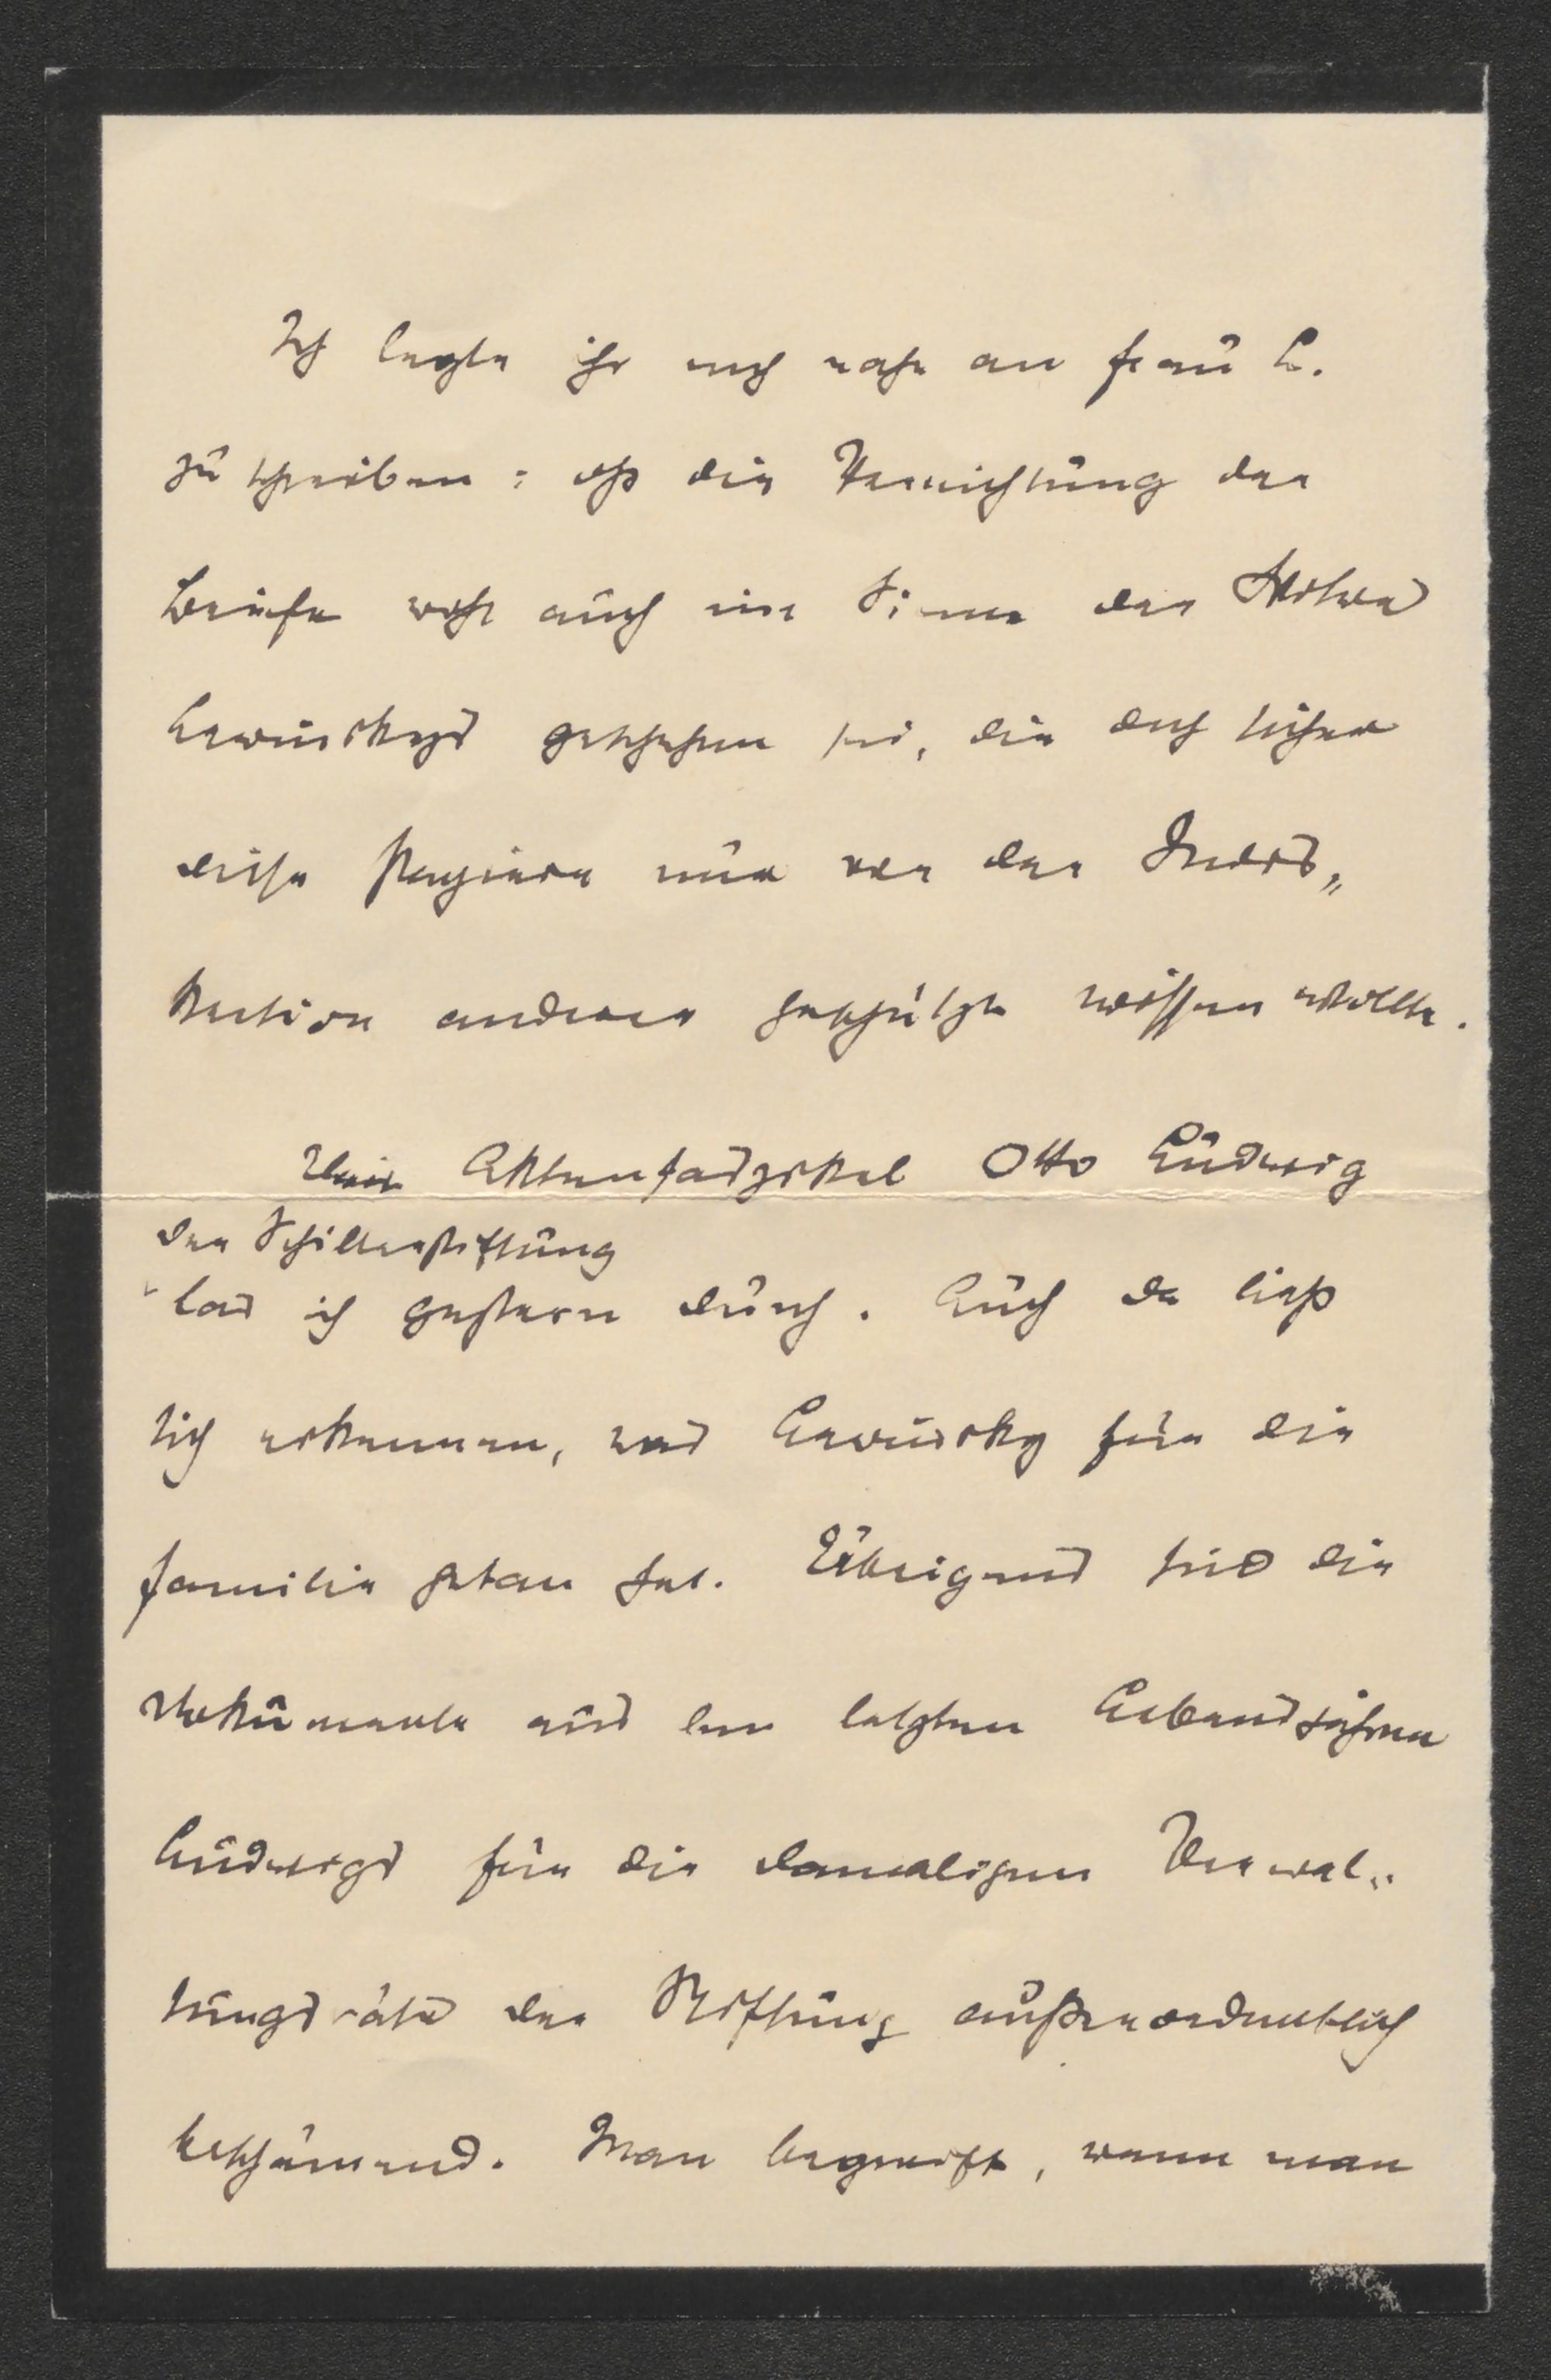 Ich legte ihr auch nahe an Frau L.
zu schreiben: ob die Vernichtung der
Briefe wohl auch im Sinne der Witwe
Lewinskys geschehen sei, die doch sicher
diese Papiere nur vor der Indis„
kretion anderer geschützt wissen wollte.
Aktenfaszikel Otto Ludwig
der Schillerstiftung
las ich gestern durch. Auch da ließ
sich erkennen, was Lewinsky für die
Familie getan hat. Übrigens sind die
Dokumente aus den letzten Lebensjahren
Ludwigs für die damaligen Verwal„
tungsräte der Stiftung außerordentlich
beschämend. Man begreift, wenn man